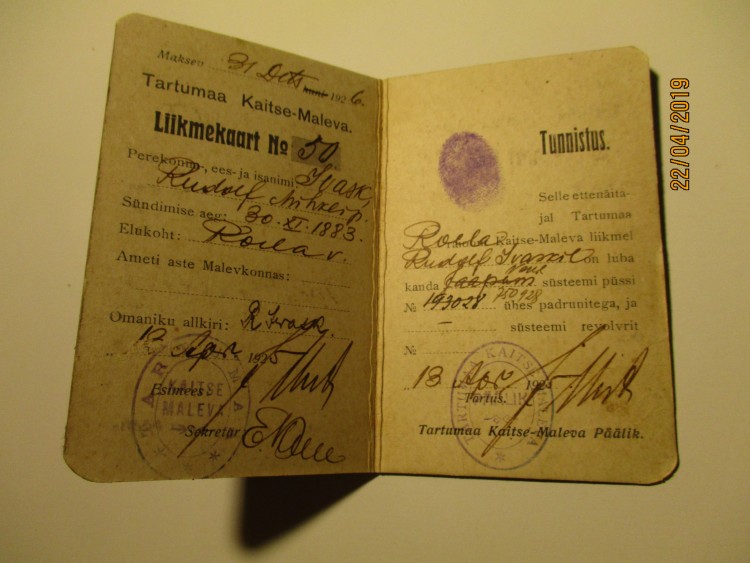 Maksev 31 Dets 1926.
Tartumaa Kaitse-Maleva.
Liikmekaart No 50
Perekonna-, ees- ja isanimi: Ivask,
Rudolf Mihkel p.
Sündimise aeg: 30. XI. 1883.
Elukoht: Roela v.
Ameti aste Malevkonnas:
Omaniku allkiri: R Ivask.
13 Apr 1925
Esimees:
KAITSE
MALEVA
Sekretär
Tunnistus.
Selle ettenäita-
jal Tartumaa
Roela Kaitse-Maleva liikmel
Rudolf Ivaskil on luba
kanda süsteemi püssi
№ 193028 750928 ühes padrunitega, ja
— süsteemi revolvrit
№
13 Apr 1925
Tartus.
TARTUMAA KAITSE
Tartumaa Kaitse-Maleva Päälik.
22/04/2019